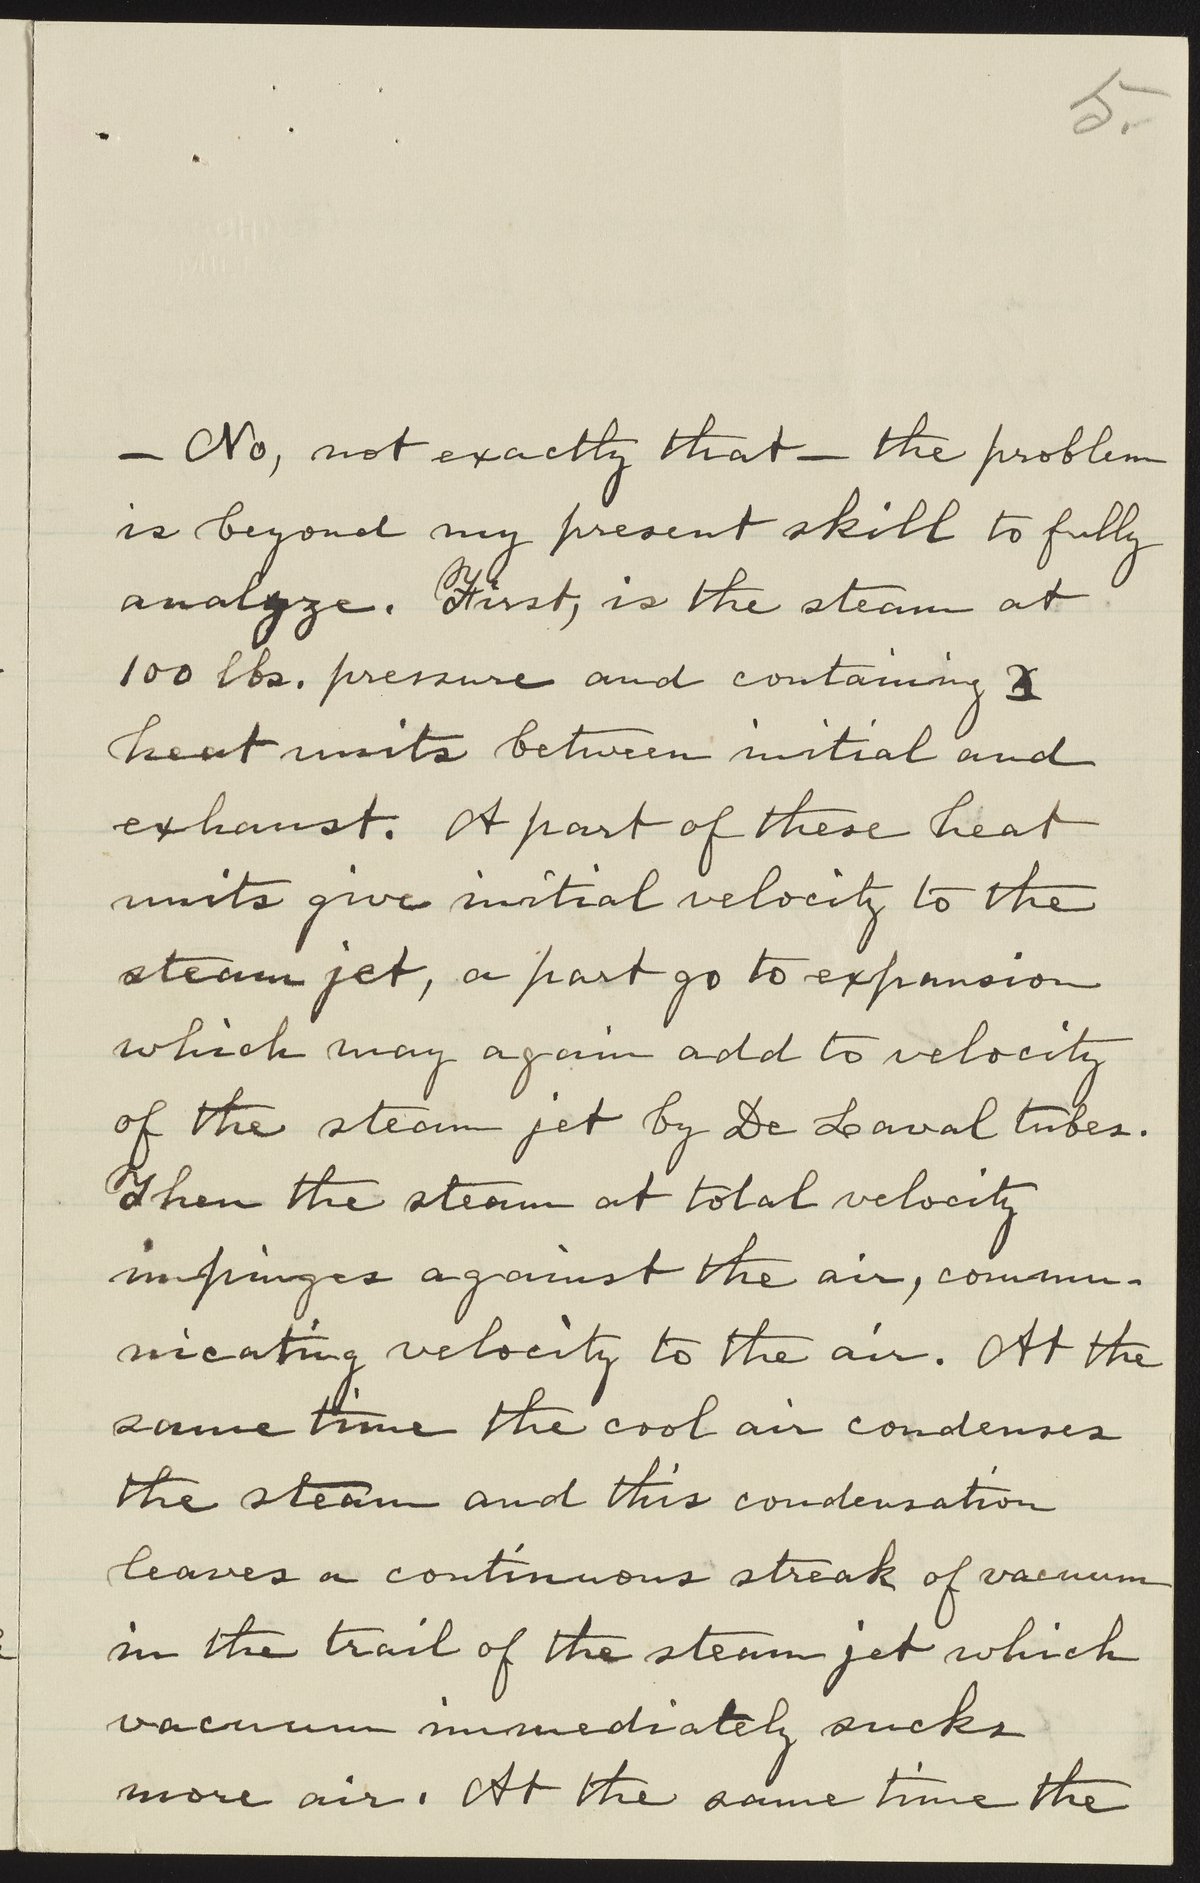 5.
— No, not exactly that — the problem
is beyond my present skill to fully
analyze. First, is the steam at
100 lbs. pressure and containing x
heat units between initial and
exhaust. A part of these heat
units give initial velocity to the
steam jet, a part go to expansion
which may again add to velocity
of the steam jet by De Laval tubes.
Then the steam at total velocity
impinges against the air, commu-
nicating velocity to the air. At the
same time the cool air condenses
the steam and this condensation
leaves a continuous streak of vacuum
in the trail of the steam jet which
vacuum immediately sucks
more air. At the same time the